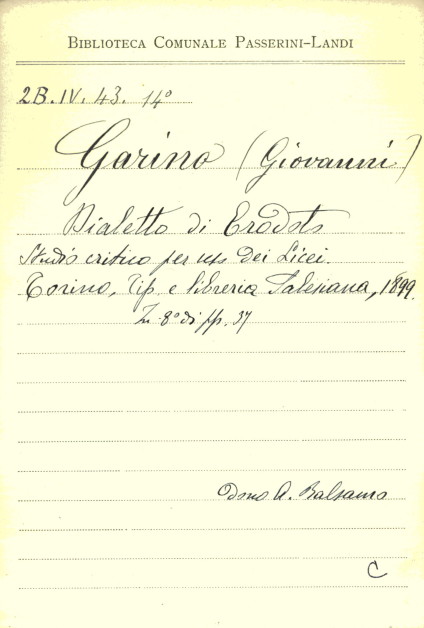 BIBLIOTECA COMUNALE PASSERINI-LANDI
2B.IV.43.14º
Garino (Giovanni)
Dialetto di Erodoto
Studio critico per uso dei Licei.
Torino, Tip. e libreria Salesiana, 1899.
In-8º di pp. 37
Dono A. Balsamo
C